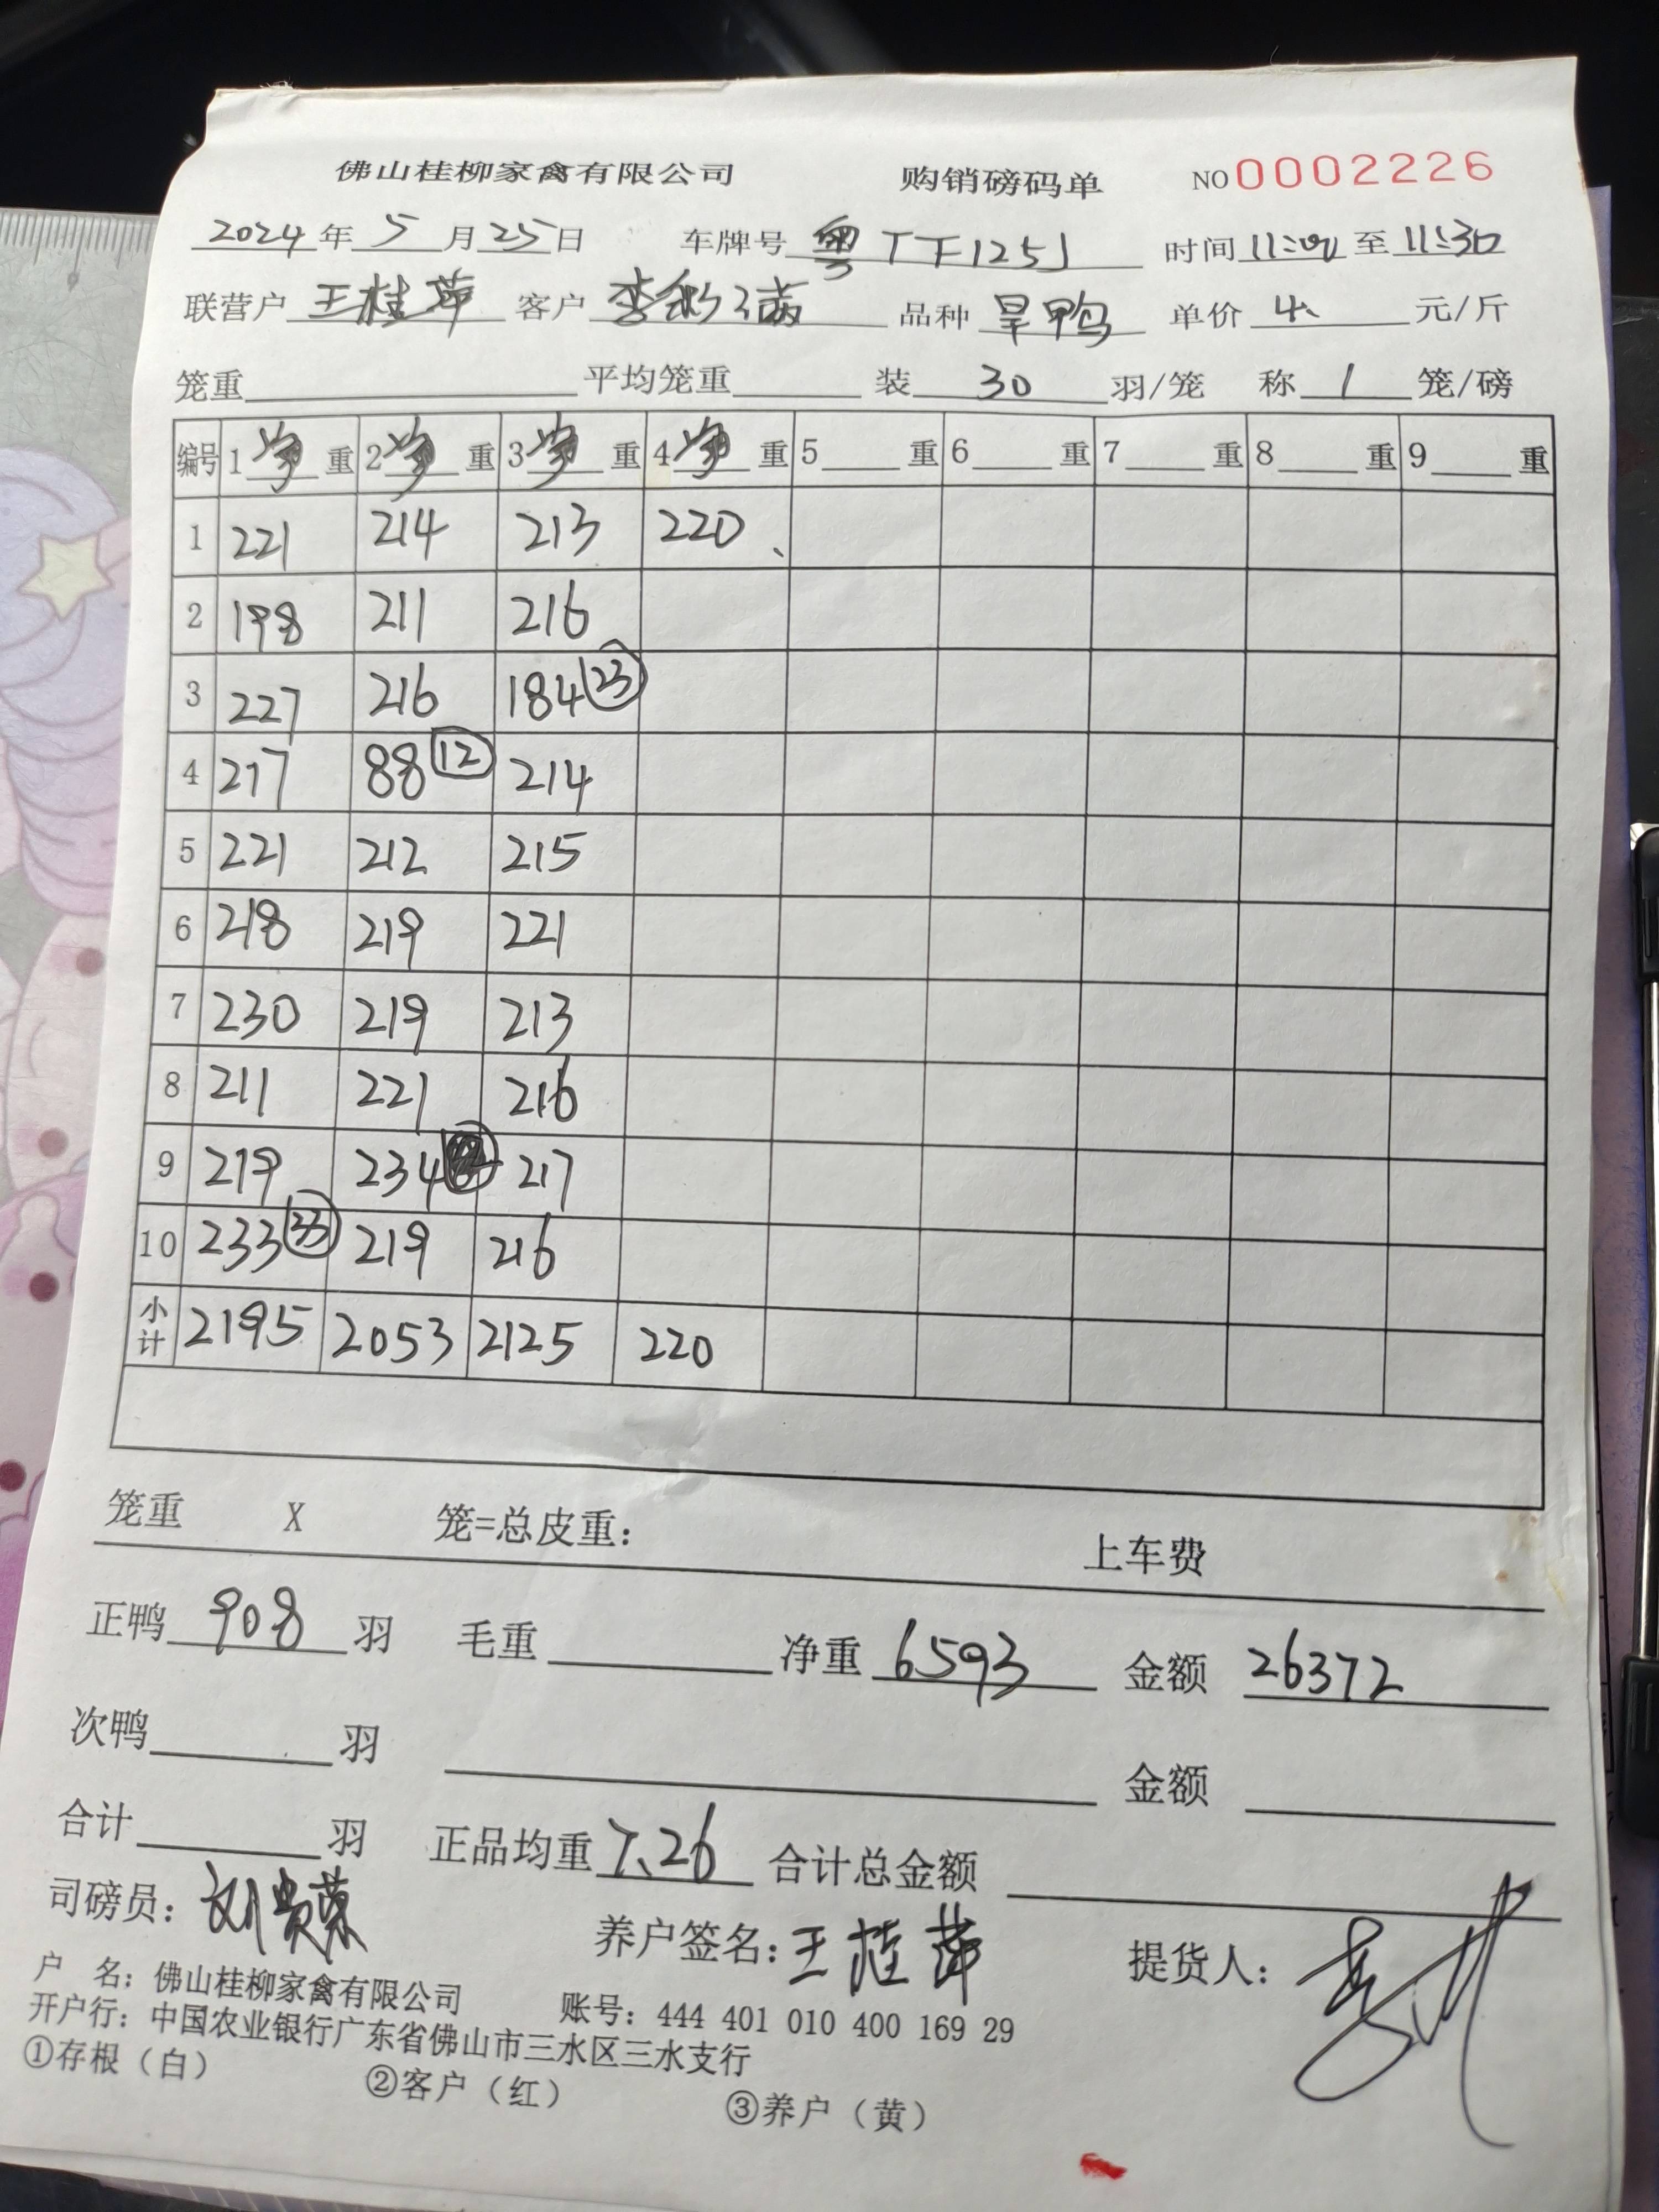 佛山桂柳家禽有限公司 购销磅码单 NO 0002226
2024年5月25日 车牌号 粤TF1251 时间 11:00 至 11:30
联营户 王桂萍 客户 李彩满 品种 旱鸭 单价 4、 元/斤
笼重 平均笼重 装 30 羽/笼 称 1 笼/磅
编号 1净重 2净重 3净重 4净重 5重 6重 7重 8重 9重
1 221 214 213 220、
2 198 211 216
3 227 216 184 23
4 217 88 12 214
5 221 212 215
6 218 219 221
7 230 219 213
8 211 221 216
9 219 234 217
10 233 33 219 216
小计 2195 2053 2125 220
笼重 X 笼=总皮重: 上车费
正鸭 908 羽 毛重 净重 6593 金额 26372
次鸭 羽 金额
合计 羽 正品均重 7.26 合计总金额
司磅员: 刘贵荣 养户签名: 王桂萍 提货人:
户 名: 佛山桂柳家禽有限公司 账号: 444 401 010 400 169 29
开户行: 中国农业银行广东省佛山市三水区三水支行
①存根（白） ②客户（红） ③养户（黄）